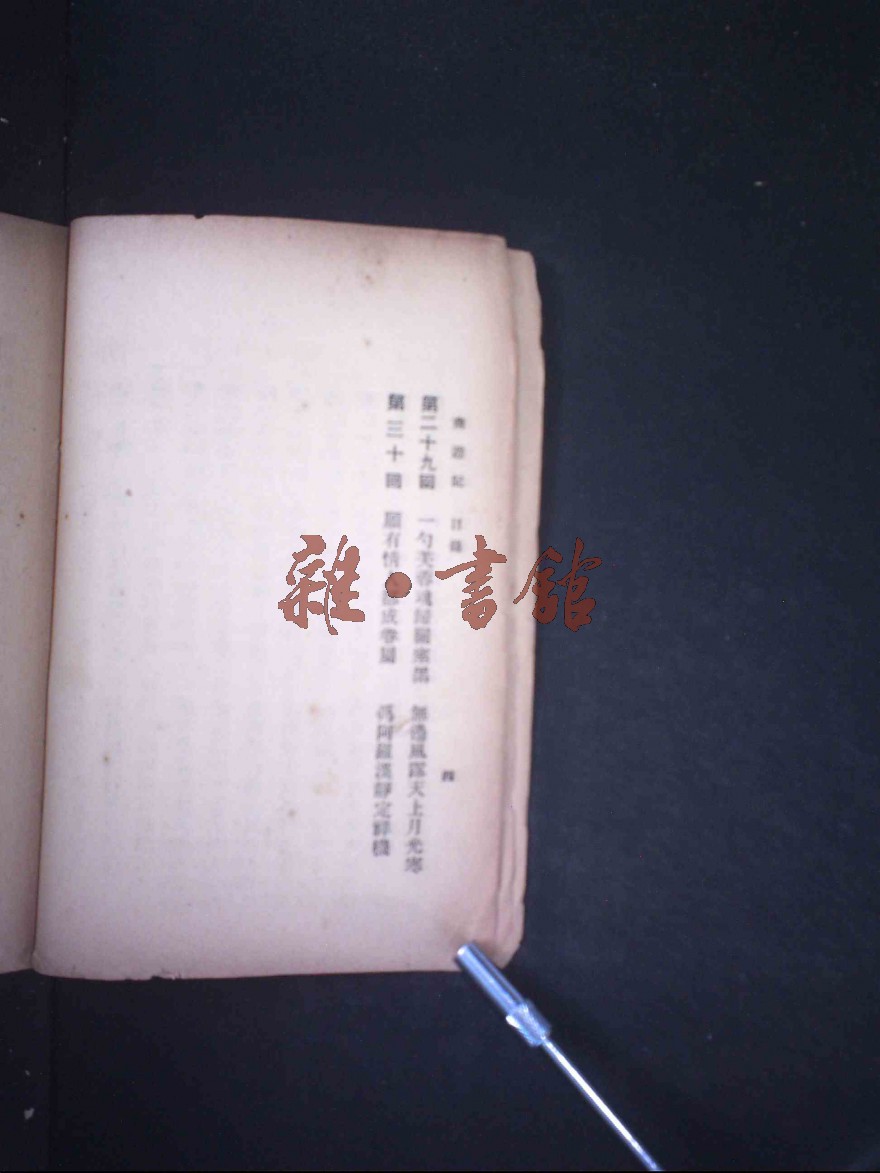 遊記 目錄
四
第二十九回 一勺芙蓉魂歸關塞黑 無邊風露天上月光寒
第三十回 願有情 都成眷屬 爲阿羅漢靜定禪機
雜·書館